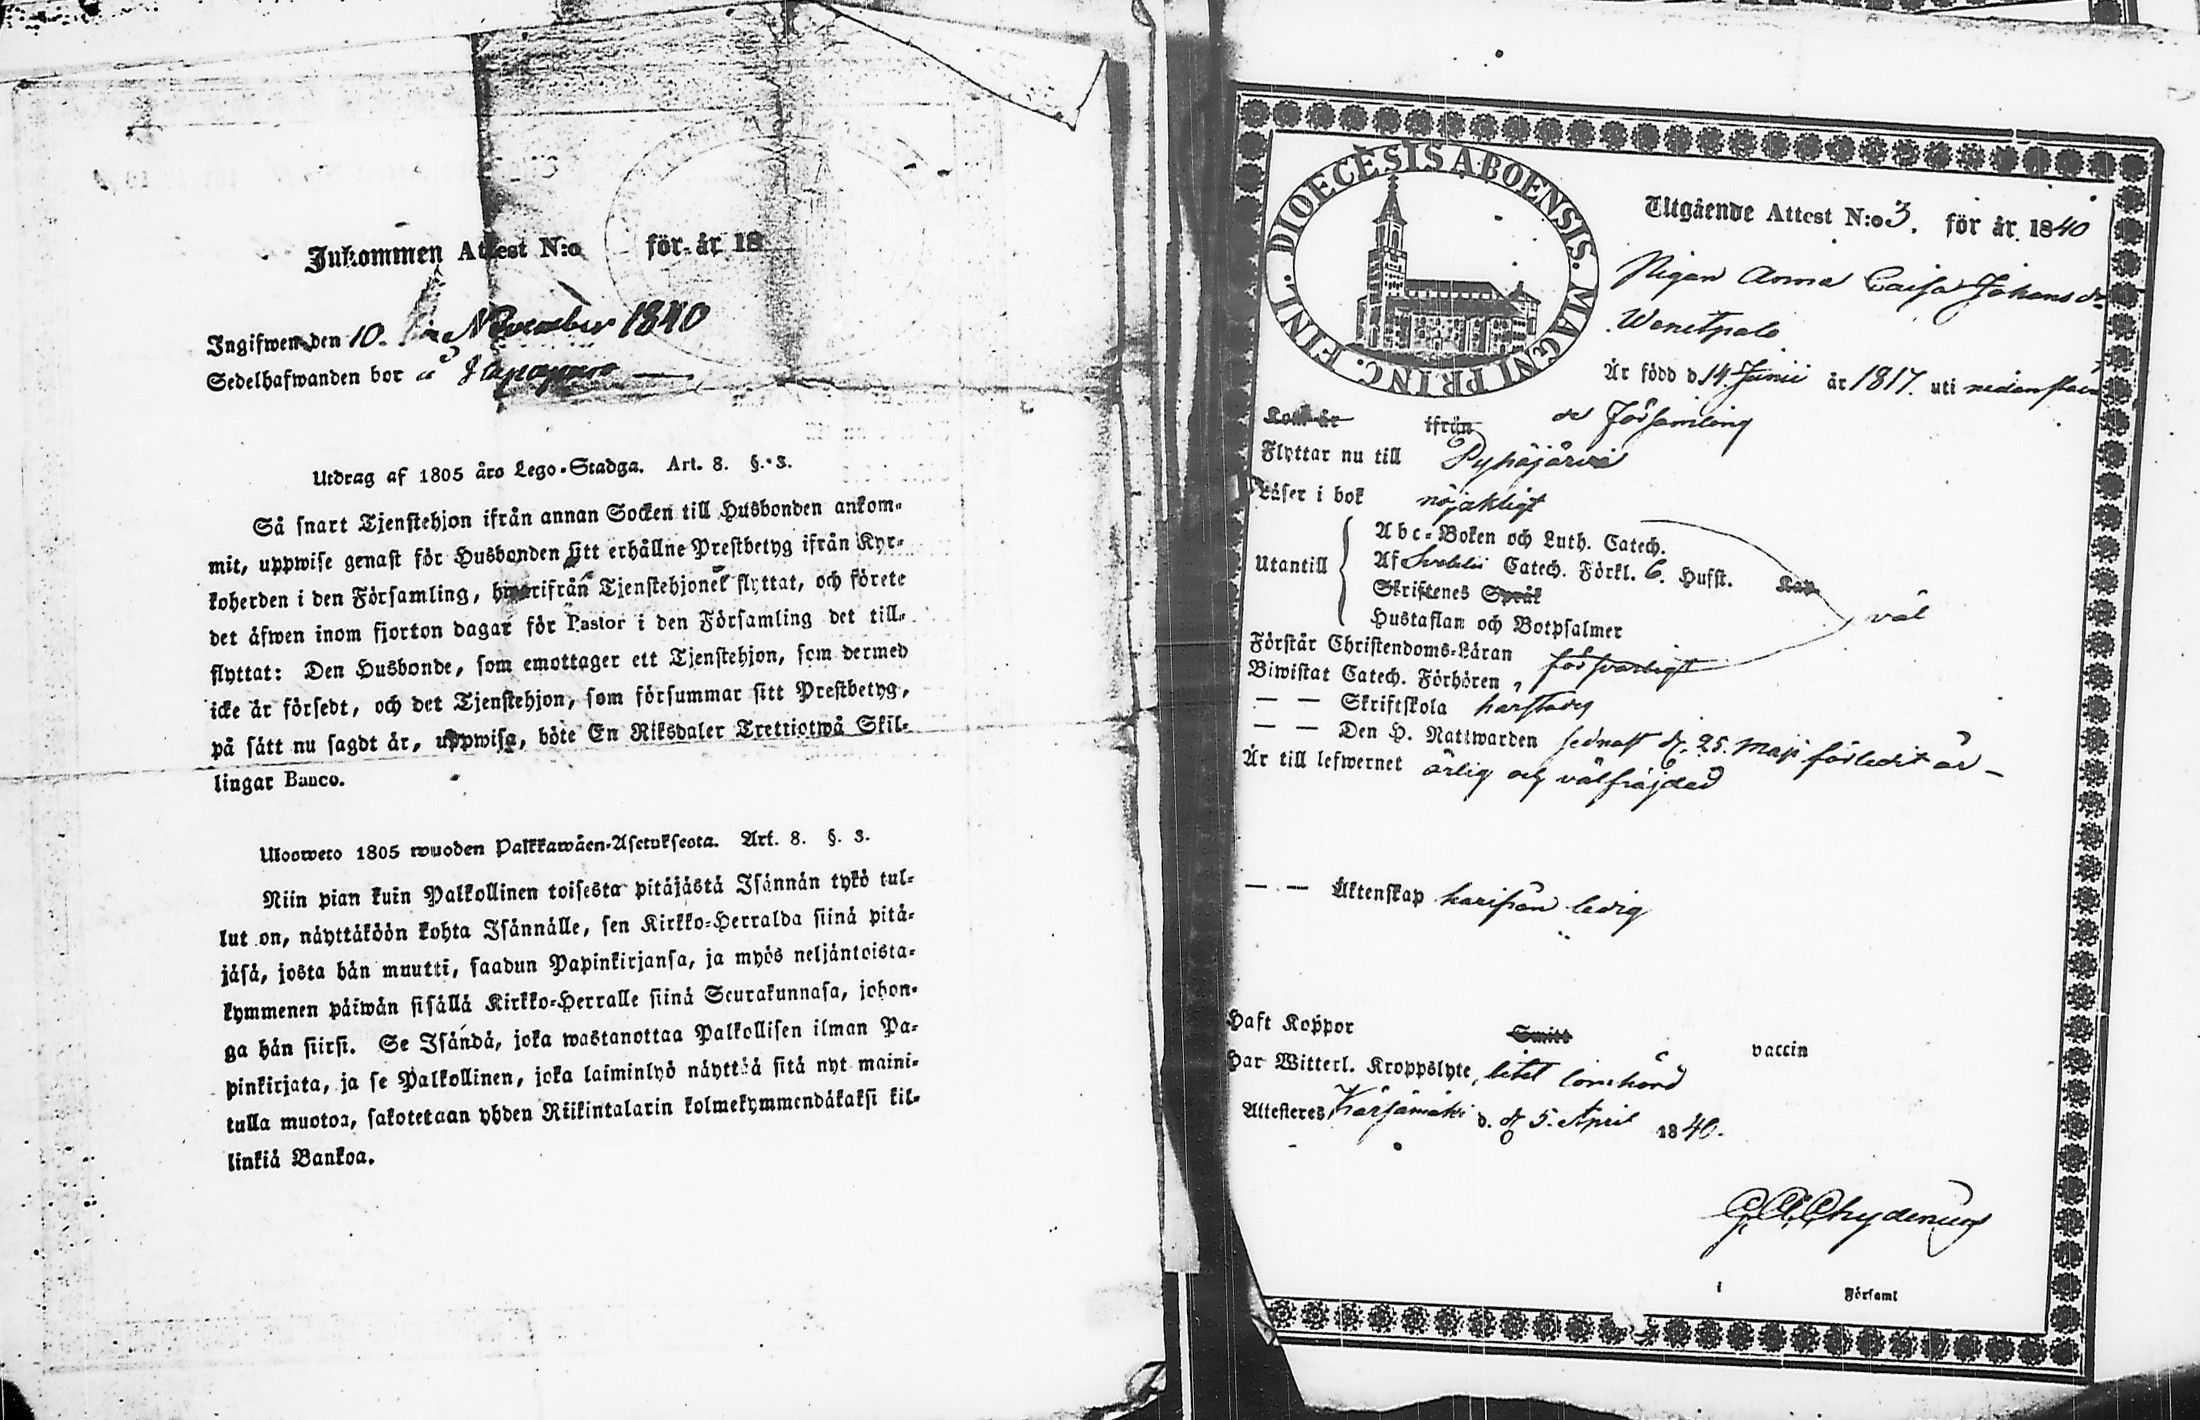 Inkommen Attest N:o för år 18
Ingifwen den 10. November 1840
Sedelhafwanden bor å
Utdrag af 1805 års Lego-Stadga. Art. 8. §. 3.
Så snart Tjenstehjon ifrån annan Socken till Husbonden ankom-
mit, uppwise genast för Husbonden sitt erhållne Prestbetyg ifrån Kyr-
koherden i den Församling, hwarifrån Tjenstehjonet flyttat, och förete
det äfwen inom fjorton dagar för Pastor i den Församling det till-
flyttat: Den Husbonde, som emottager ett Tjenstehjon, som dermed
icke är försedt, och det Tjenstehjon, som försummar sitt Prestbetyg,
på sätt nu sagdt är, uppwisa, böte En Riksdaler Trettiotwå Skil-
lingar Banco.
Ulosweto 1805 wuoden Palkkawäen-Asetuksesta. Art. 8. §. 3.
Niin pian kuin Palkollinen toisesta pitäjästä Isännän tykö tul-
lut on, näyttäköön kohta Isännälle, sen Kirkko-Herralda siinä pitä-
jäsä, josta hän muutti, saadun Papinkirjansa, ja myös neljäntoista-
kymmenen päiwän sisällä Kirkko-Herralle siinä Seurakunnasa, johon-
ga hän siirsi. Se Isändä, joka wastanottaa Palkollisen ilman Pa-
pinkirjata, ja se Palkollinen, joka laiminlyö näyttää sitä nyt maini-
tulla muotoa, sakotetaan yhden Riikintalarin kolmekymmendäkaksi kil-
linkiä Bankoa.
DIOECESIS ABOENSIS. MAGNI PRINC. FINL.
Utgående Attest N:o 3. för år 1840
Pigan Anna Caisa Johansdr
Wenetpalo
Är född d 14 Junii år 1817. uti nedanståen
de Församling
Kom år ifrån
Flyttar nu till Pyhäjärvi
Läser i bok nöjakligt
Utantill
Abc-Boken och Luth. Catech.
Af Svebelii Catech. Förkl. 6. Hufst. Kap
Skriftenes Språk
Hustaflan och Botpsalmer
väl
Förstår Christendoms-Läran försvarligt
Biwistat Catech. Förhören „
— — Skriftskola
— — Den H. Nattwarden sednast d. 25. Maji förledit år —
Är till lefwernet ärlig och välfräjdad
— — Äktenskap härifrån ledig
Haft Koppor Smitt vaccin
Har Witterl. Kroppslyte, litet lomhörd
Attesteres Kärsämäki d. d 5. April 1840.
Chydenius
i Församl